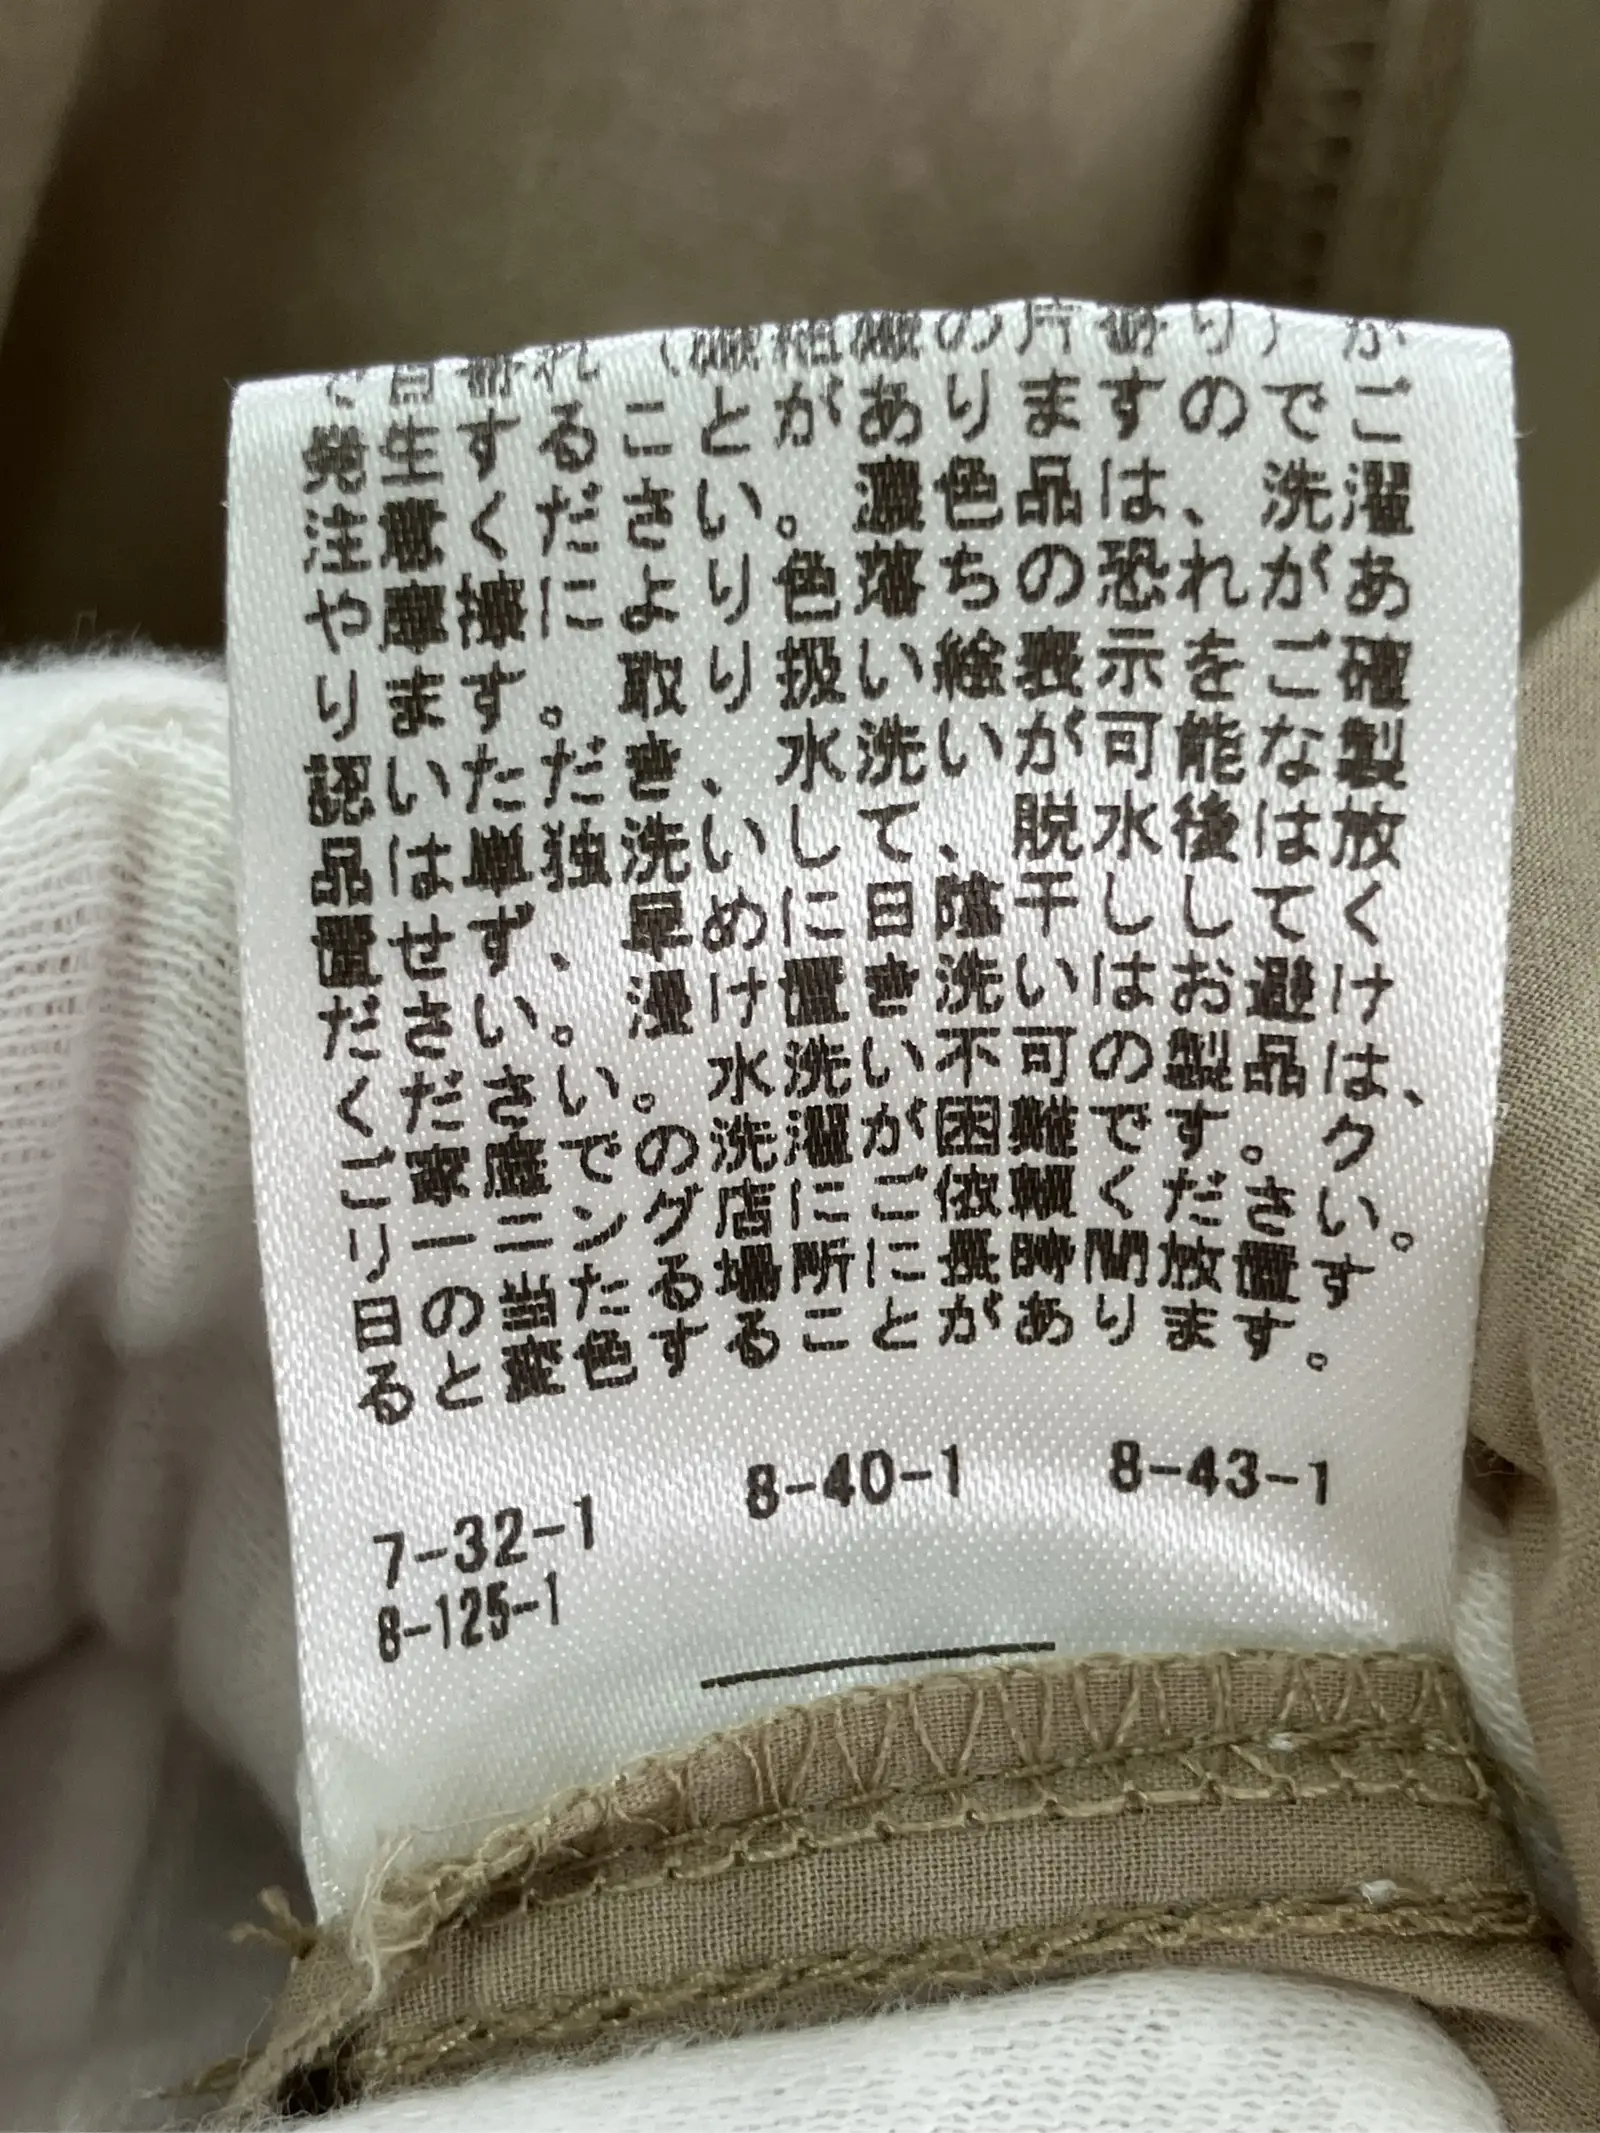 目寄れ（縦組織の片寄り）が
発生することがありますのでご
注意ください。濃色品は、洗濯
や摩擦により色落ちの恐れがあ
ります。取り扱い絵表示をご確
認いただき、水洗いが可能な製
品は単独洗いして、脱水後は放
置せず、早めに日陰干ししてく
ださい。浸け置き洗いはお避け
ください。水洗い不可の製品は、
ご家庭での洗濯が困難です。ク
リーニング店にご依頼ください。
日の当たる場所に長時間放置す
ると変色することがあります。
7-32-1 8-40-1 8-43-1
8-125-1